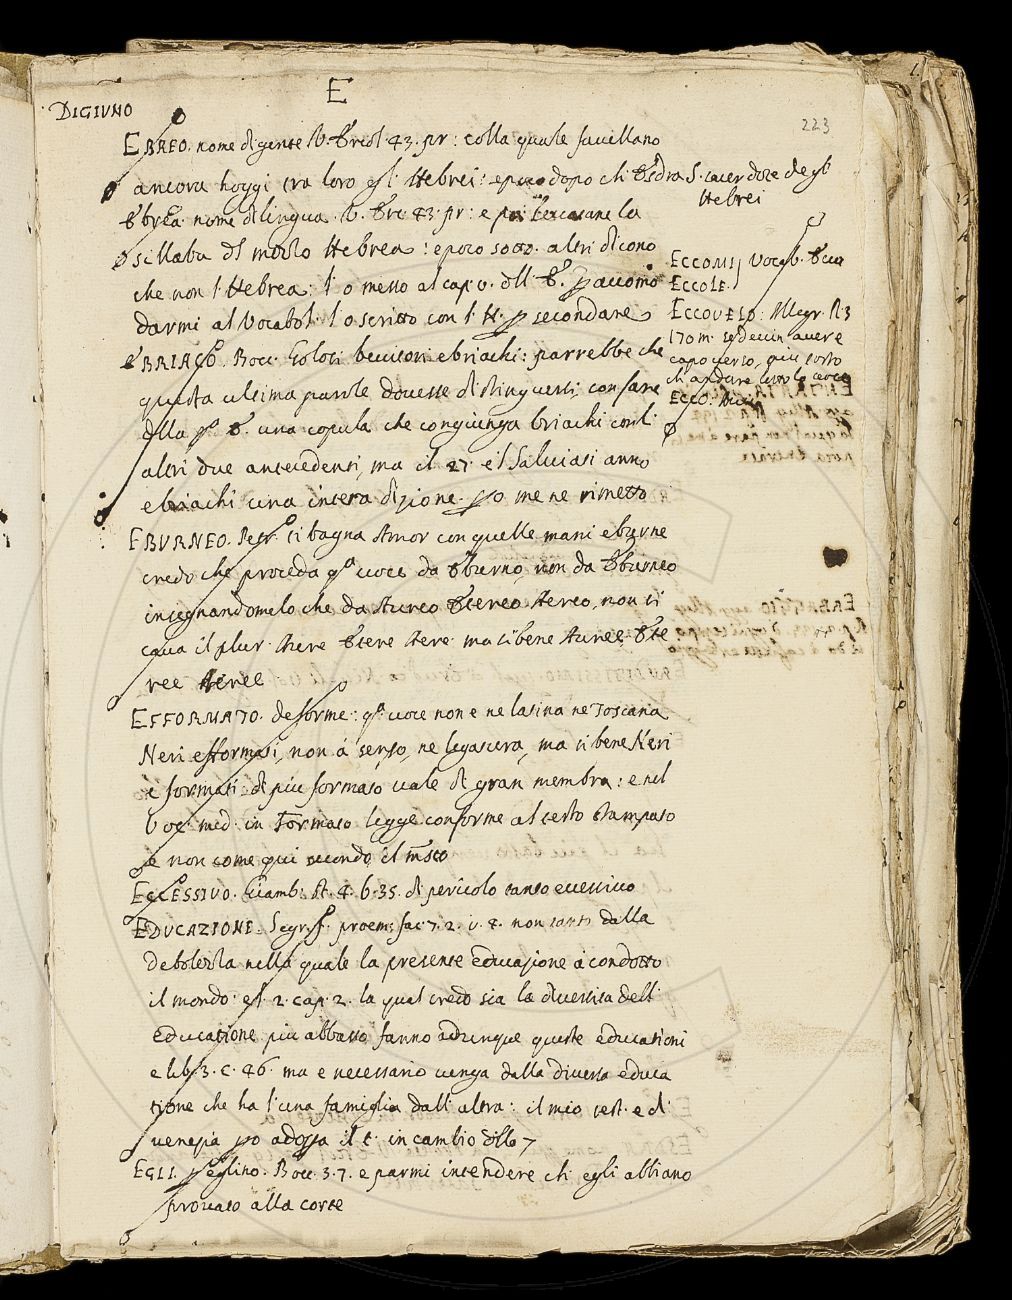 E
DIGIVNO
223
EBREO. nome di gente V. Ebreo 43. pr: colla quale favellano
ancora hoggi tra loro gl'Hebrei: e poco dopo ch'Esdra S. sacerdote degl'
Hebrei
Ebrea nome di lingua. V. Ebre 43. pr: e poi
sillaba del modolo Hebrea: e poco sotto altri dicono
che non l'Hebrea: l'o messo al cap. v. dell'E. p accomo
darmi al Vocabol. l'o scritto con l'H. p secondare
EBRIACO. Bocc. Golosi bevitori ebriachi: parrebbe che
questa ultima parole dovesse distinguersi, con fare
della pa E. una copula che congiunga briachi con l'
altri due antecedenti, ma il 27. e il Salviati anno
ebriachi una intera dizione. po me ne rimetto
EBVRNEO. Petr. ti bagna Amor con quelle mani eburne
credo che proceda qa voce da Eburno, non da Eburneo
insegnandomelo che da Aureo Etereo Aereo, non ci
cava il plur. Aure Etere Aere ma sibene Auree, Ete
ree Aeree
EFFORMATO. deforme: qa voce non e ne latina ne Toscana
Neri efformati, non à senso, ne legatura, ma sibene Neri
e formati di piu formato vale di gran membra: e nel
Voc. med. in Formato legge conforme al testo stampato
e non come qui secondo il msto
ECCESSIVO. Giamb. St. 4. 6. 35. di pericolo tanto eccessivo
EDVCAZIONE. Segr. f. proem. fac. 7. 2. v. 4. non tanto dalla
debolezza nella quale la presente educazione à condotto
il mondo: el 2. cap. 2. la qual credo sia la diversita dell'
educatione piu abbasso fanno adunque queste educationi
e lib. 3. c. 46. ma e necessario venga dalla diversa educa
tione che ha l'una famiglia dall'altra: il mio test. e di
venezia po adopra il t. in cambio dello z
EGLI. p eglino. Bocc. 3. 7. e parmi intendere ch'egli abbiano
provato alla corte
ECCOMI, Vocab. Ecco
ECCOLE.
ECCOVELO: Allegr. R. 3
170 m. se devin avere
capoverso, piu sotto
ch'andare sotto la voce
ECCO: